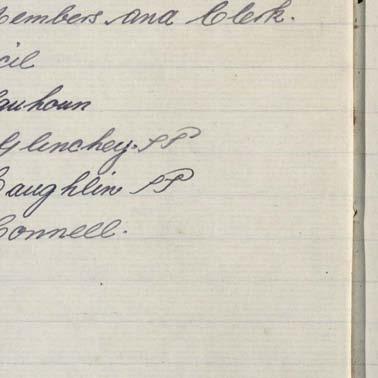 embers and Clerk.
cil
auhoun
Glinchey. JP
Caughlin JP
Connell.